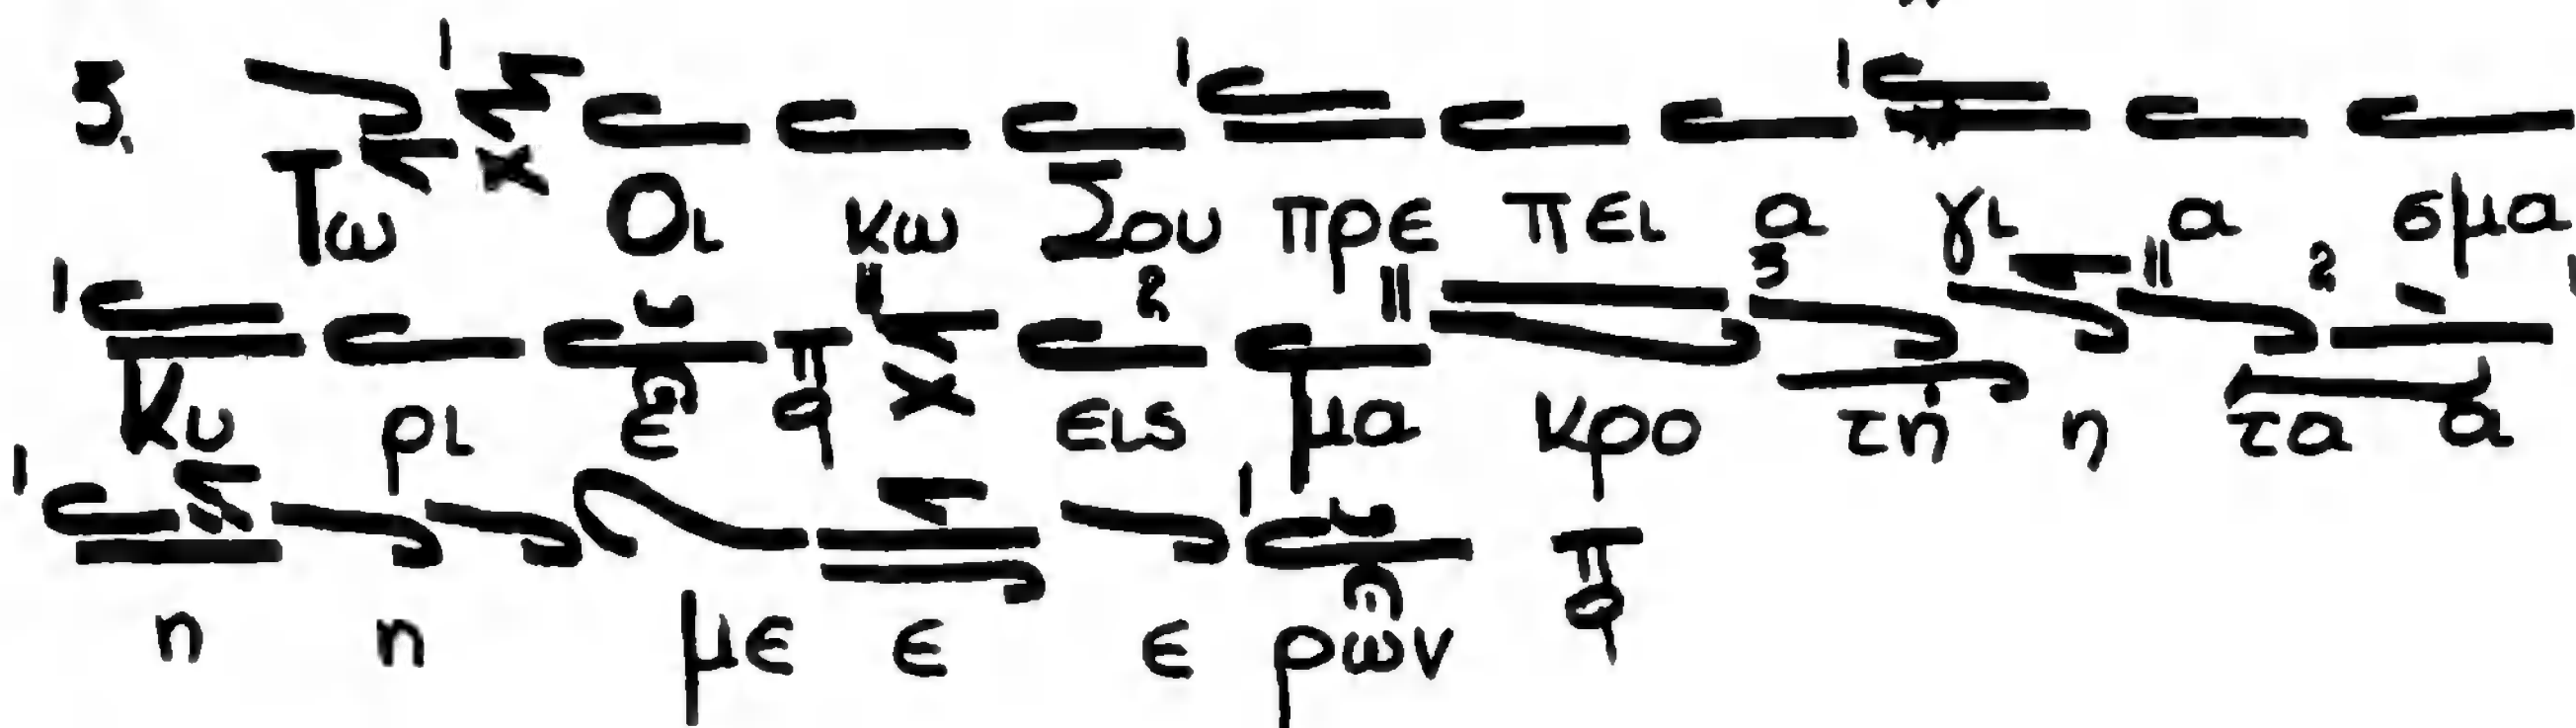 3. Τω Οι κω Σου πρε πει α γι α σμα
Κυ ρι ε εις μα κρο τη η τα α
η η με ε ε ρων